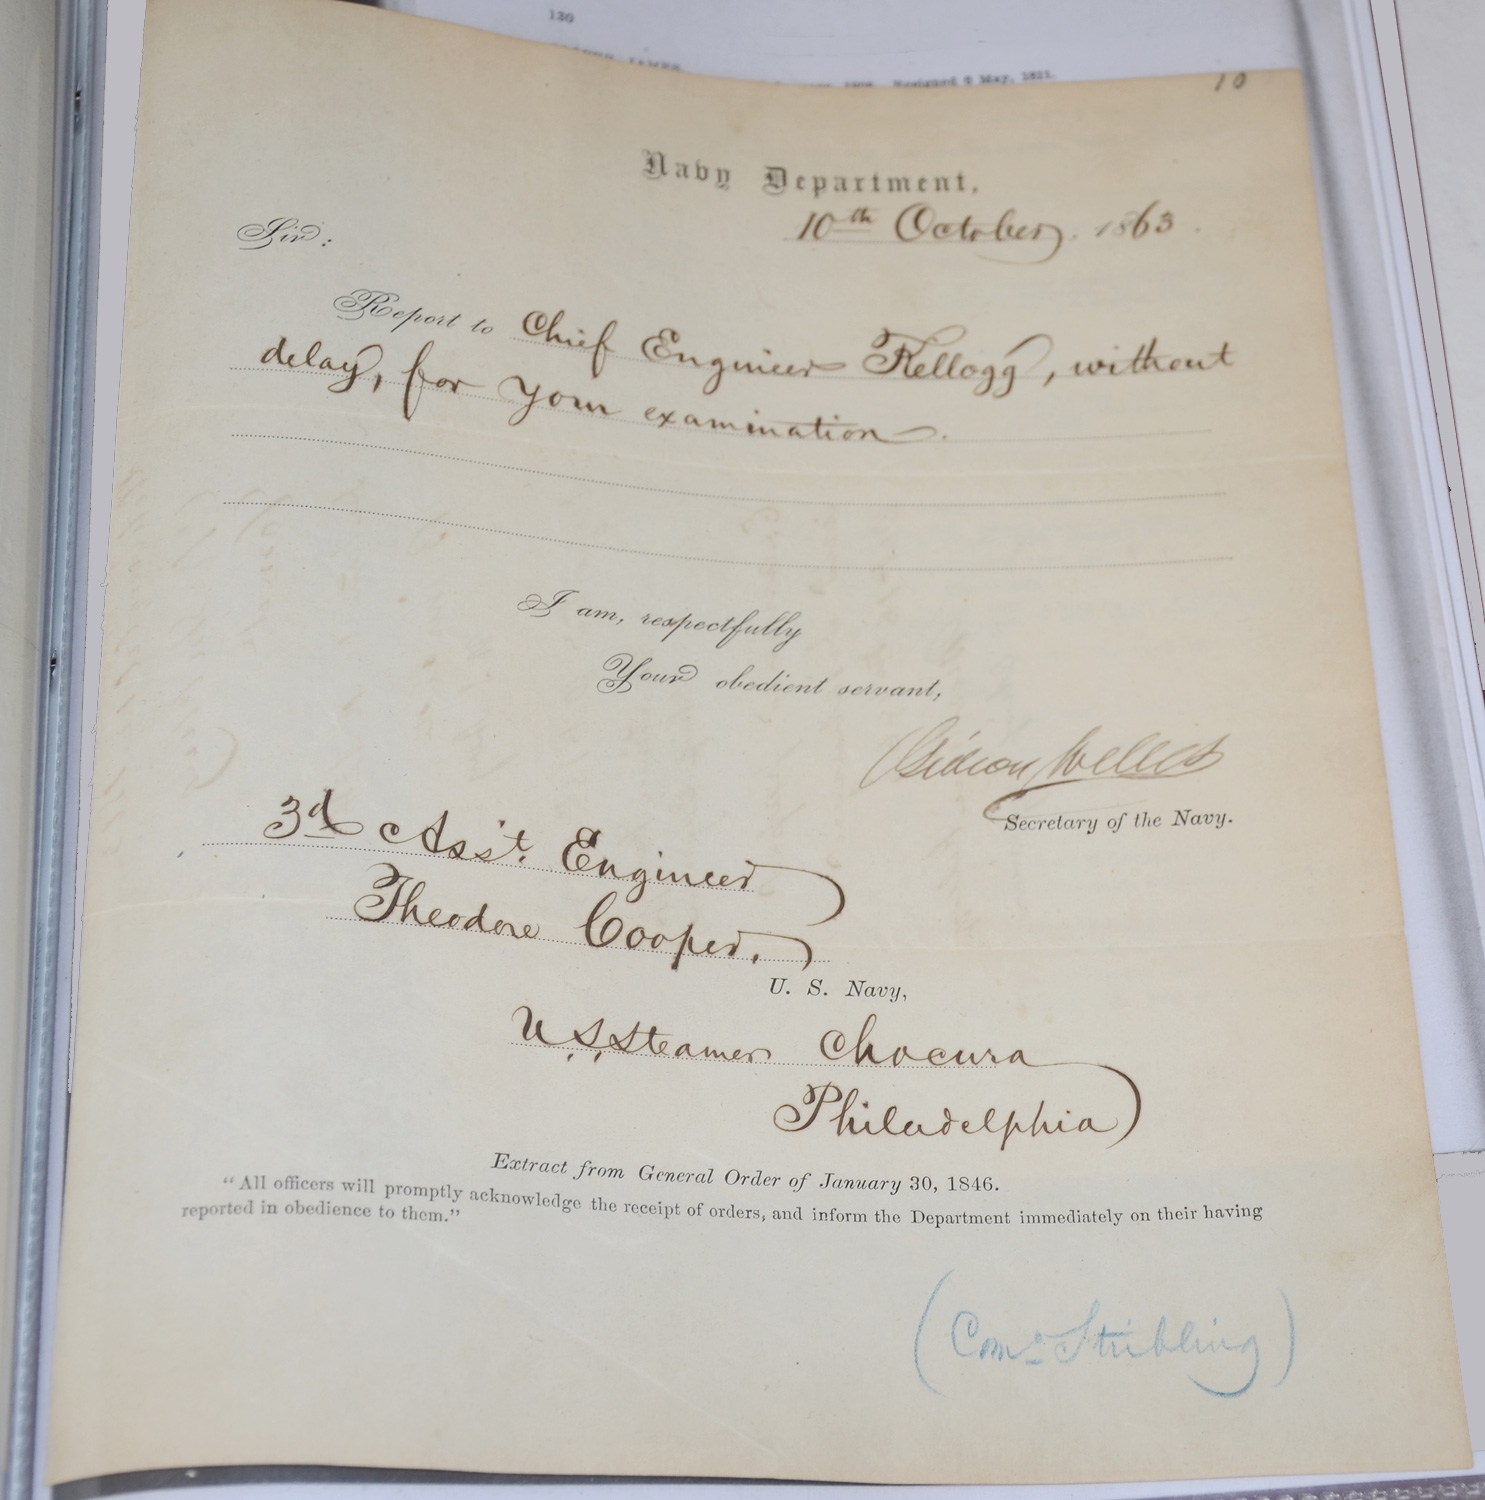 130
JAMES
Resigned 6 May, 1821.
10
Navy Department,
10th October, 1863.
Sir:
Report to Chief Engineer Kellogg, without
delay, for your examination.
I am, respectfully
Your obedient servant,
Gideon Welles
Secretary of the Navy.
3d Ass't. Engineer
Theodore Cooper,
U. S. Navy,
U.S. Steamer Chocura
Philadelphia
Extract from General Order of January 30, 1846.
“All officers will promptly acknowledge the receipt of orders, and inform the Department immediately on their having
reported in obedience to them.”
(Como Stribling)